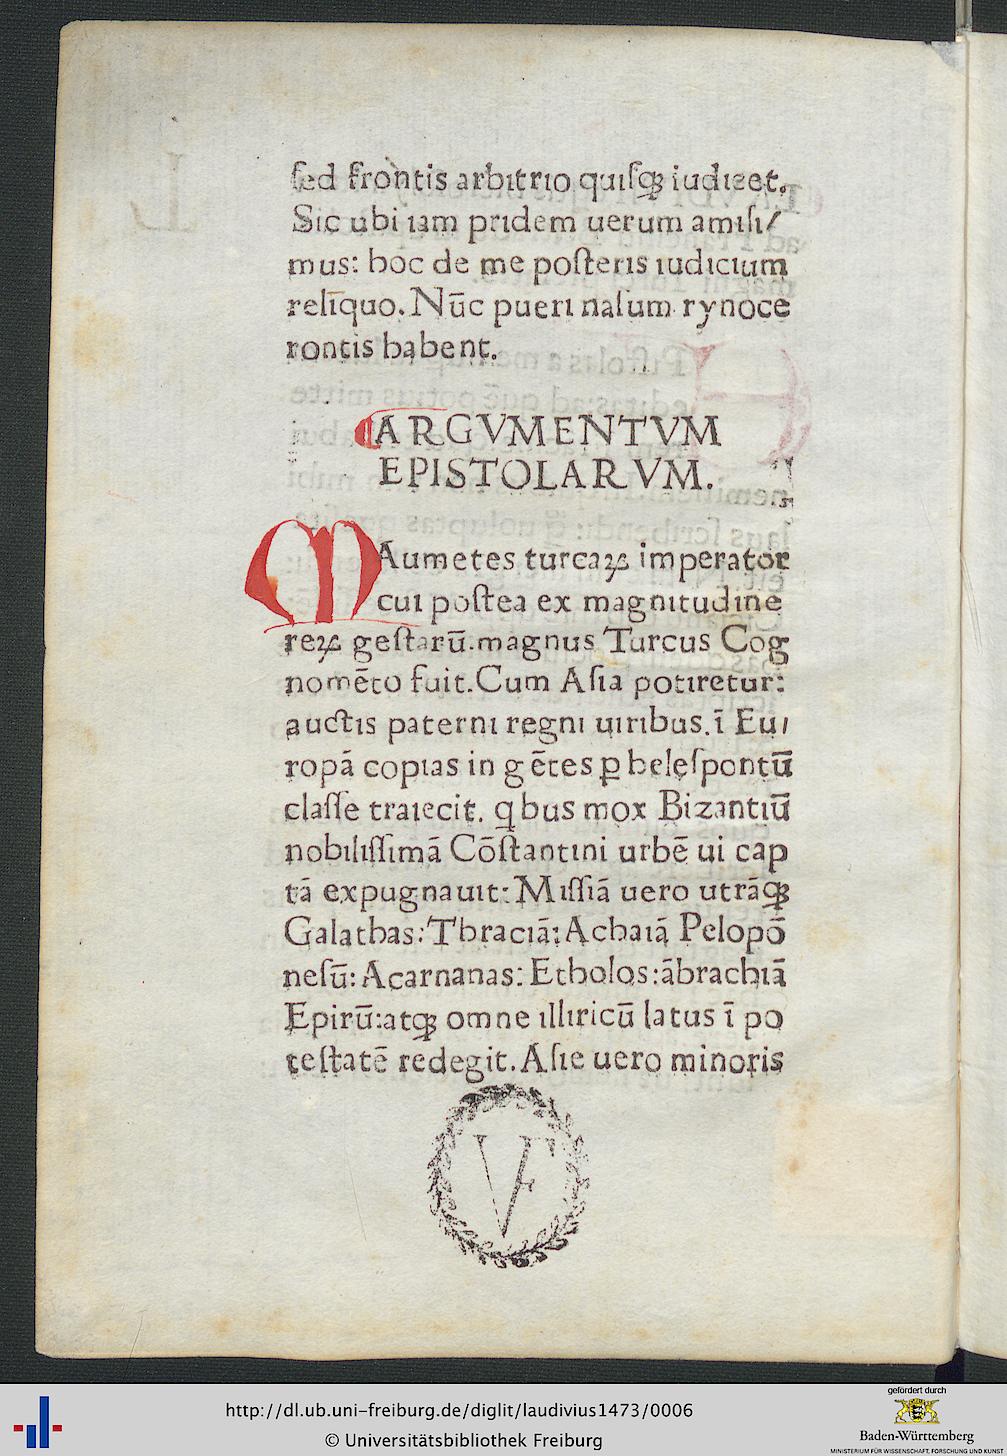 ſed frontis arbitrio quiſqꝫ iudicet.
Sic ubi iam pridem uerum amiſi/
mus: hoc de me poſteris iudicium
relīquo. Nūc pueri naſum rynoce
rontis habent.
ARGVMENTVM
EPISTOLARVM.
MAumetes turcaꝝ imperator
cui poſtea ex magnitudine
reꝝ geſtarū. magnus Turcus Cog
nomēto fuit. Cum Aſia potiretur:
auctis paterni regni uiribus. ī Eu/
ropā copias in gētes ꝑ heleſpontū
claſſe traiecit. qbus mox Bizantiū
nobiliſſimā Cōſtantini urbē ui cap
tā expugnauit: Miſſiā uero utrāqꝫ
Galathas: Thraciā: Achaiā Pelopō
neſū: Acarnanas: Etholos: ābrachiā
Epirū: atqꝫ omne illiricū latus ī po
teſtatē redegit. Aſie uero minoris
VF
http://dl.ub.uni-freiburg.de/diglit/laudivius1473/0006
© Universitätsbibliothek Freiburg
gefördert durch
Baden-Württemberg
MINISTERIUM FÜR WISSENSCHAFT, FORSCHUNG UND KUNST